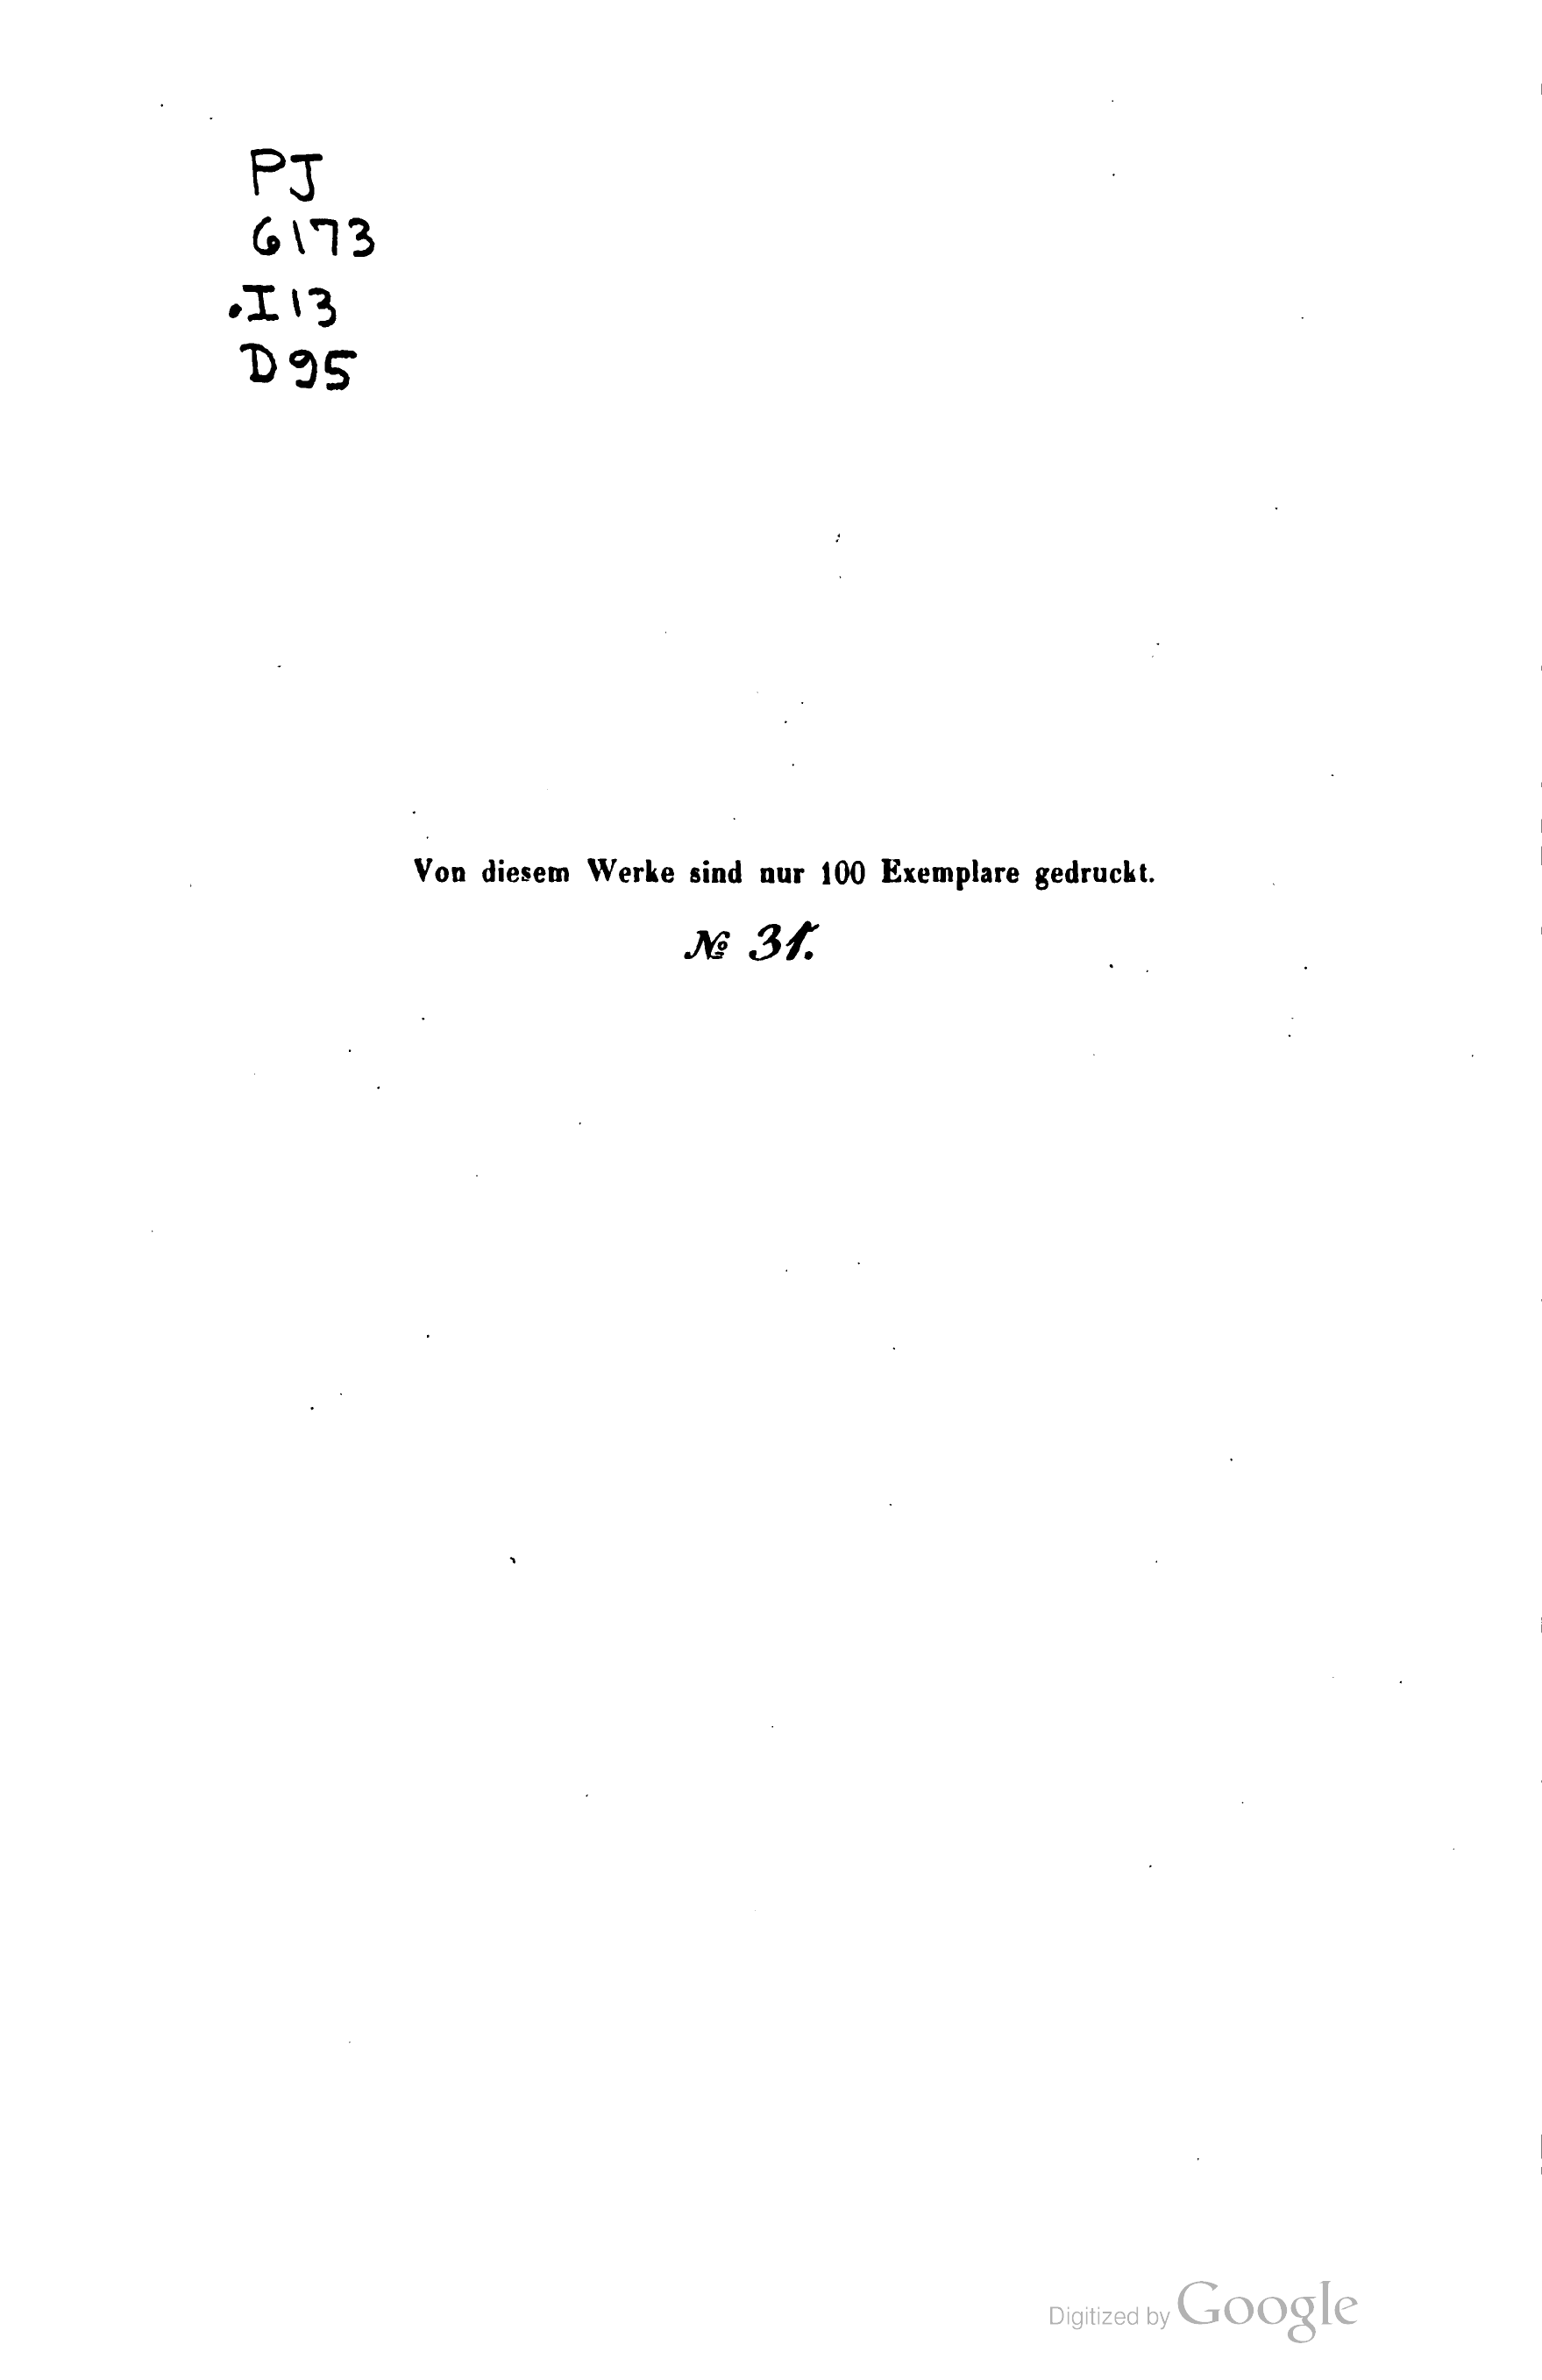 PJ
6173
.I13
D95
Von diesem Werke sind nur 100 Exemplare gedruckt.
№ 31.
Digitized by Google